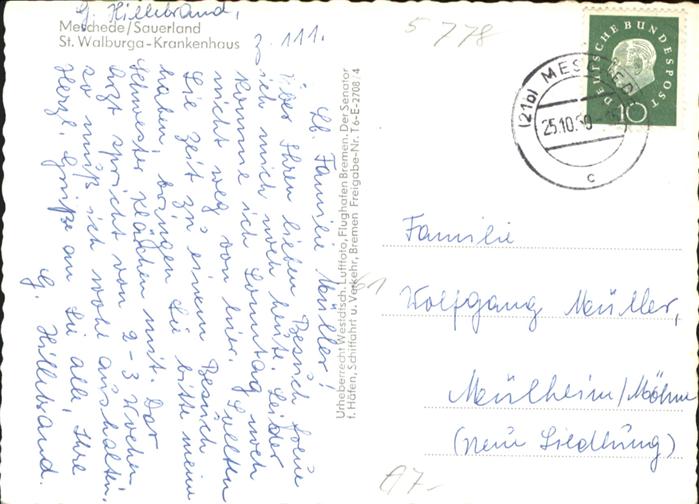 G. Hillebrand,
Meschede/Sauerland
St. Walburga-Krankenhaus
Z. 111.
5778
Lb. Familie Müller!
Über Ihren lieben Besuch freue
ich mich noch heute. Leider
komme ich Sonntag noch
nicht weg von hier. Sollten
Sie Zeit zu einem Besuch
haben, bringen Sie bitte meine
Schwester Klärchen mit. Der
Arzt spricht von 2-3 Wochen
so muß ich wohl aushalten.
Herzl. Grüße an Sie alle, Ihre
G. Hillebrand.
Urheberrecht Westdtsch. Luftfoto, Flughafen Bremen. Der Senator
f. Häfen, Schiffahrt u. Verkehr, Bremen Freigabe-Nr. T6-E-2708/4
61
DEUTSCHE BUNDESPOST
10
(21b) MESCHEDE
25.10.60
c
Familie
Wolfgang Müller,
Mülheim/Möhne
(Neue Siedlung)
A7-